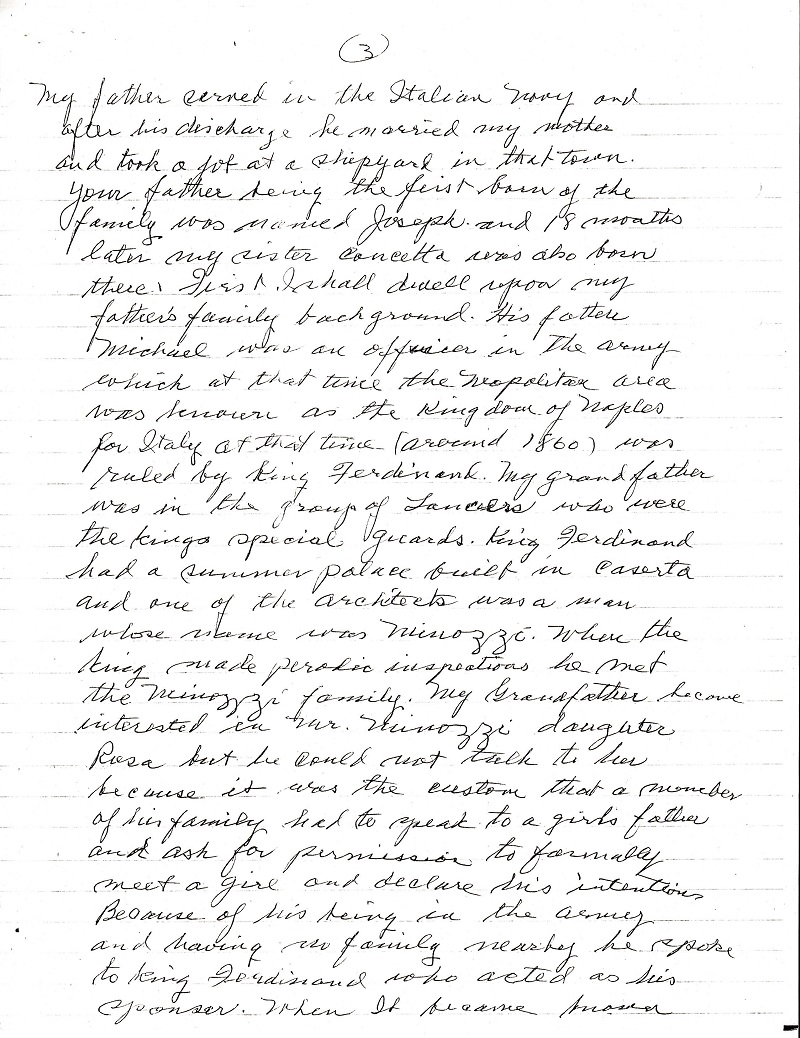 3
My father served in the Italian Navy and
after his discharge he married my mother
and took a job at a shipyard in that town.
Your father being the first born of the
family was named Joseph and 18 months
later my sister Concetta was also born
there. First I shall dwell upon my
father's family background. His father
Michael was an officer in the army
which at that time the Neopolitan area
was known as the Kingdom of Naples
for Italy at that time (around 1860) was
ruled by King Ferdinand. My grandfather
was in the group of Lancers who were
the kings special guards. King Ferdinand
had a summer palace built in Caserta
and one of the architects was a man
whose name was Minozzi. When the
king made perodic inspections he met
the Minozzi family. My Grandfather become
interested in Mr. Minozzi daughter
Rosa but he could not talk to her
because it was the custom that a member
of his family had to speak to a girls father
and ask for permission to formally
meet a girl and declare his intentions
Because of his being in the army
and having no family nearby he spoke
to King Ferdinand who acted as his
sponser. When It became known